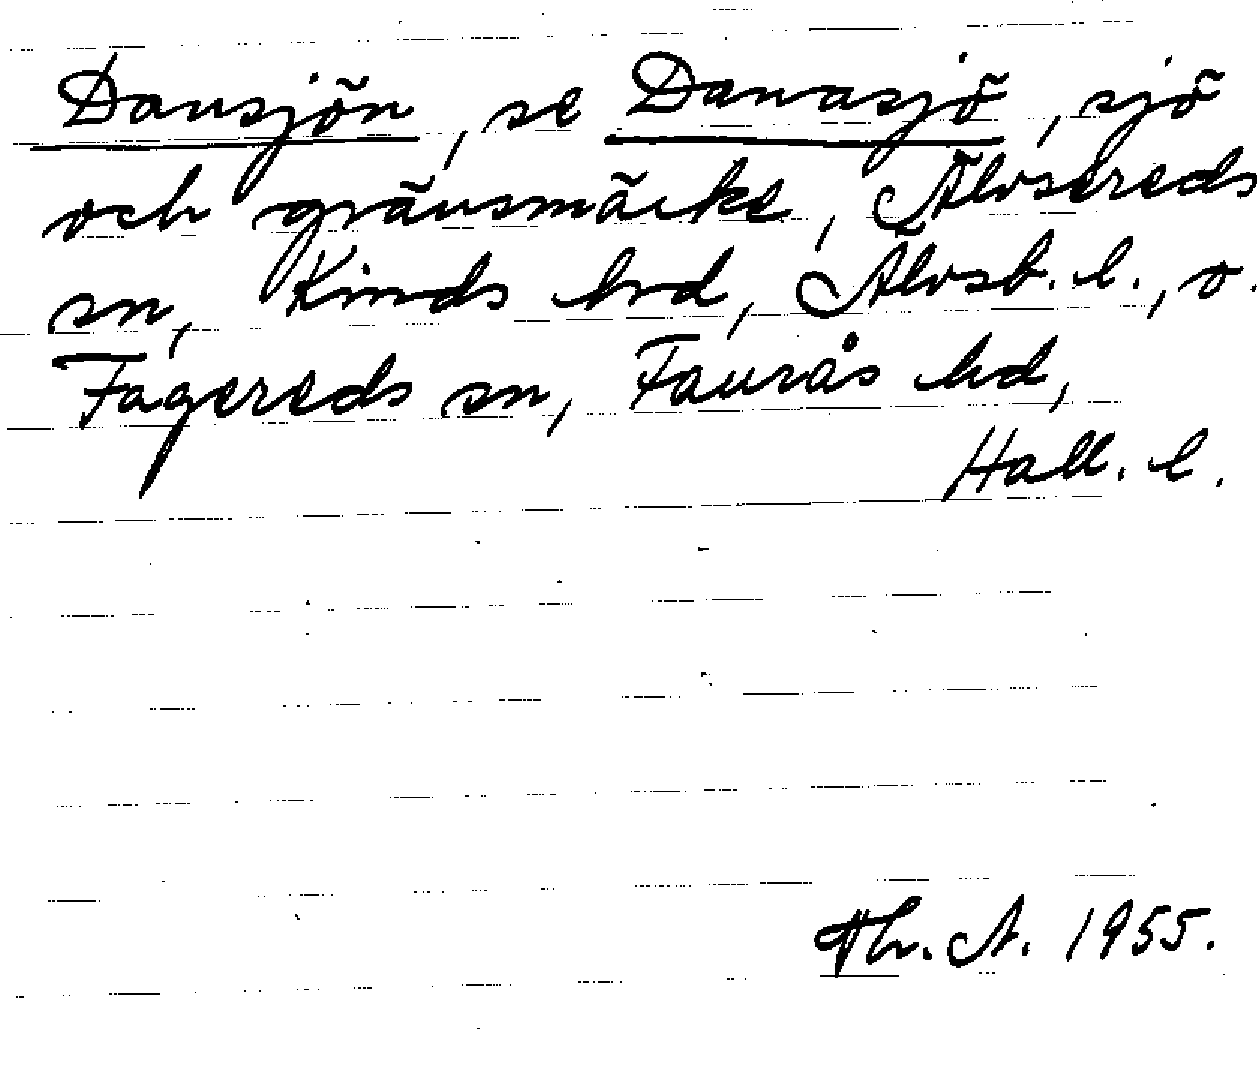 Dansjön, se Danasjö, sjö
och gränsmärke, Älvsereds
sn, Kinds hrd, Älvsb. l., o.
Fagereds sn, Faurås hd,
Hall. l.
Th. A. 1955.